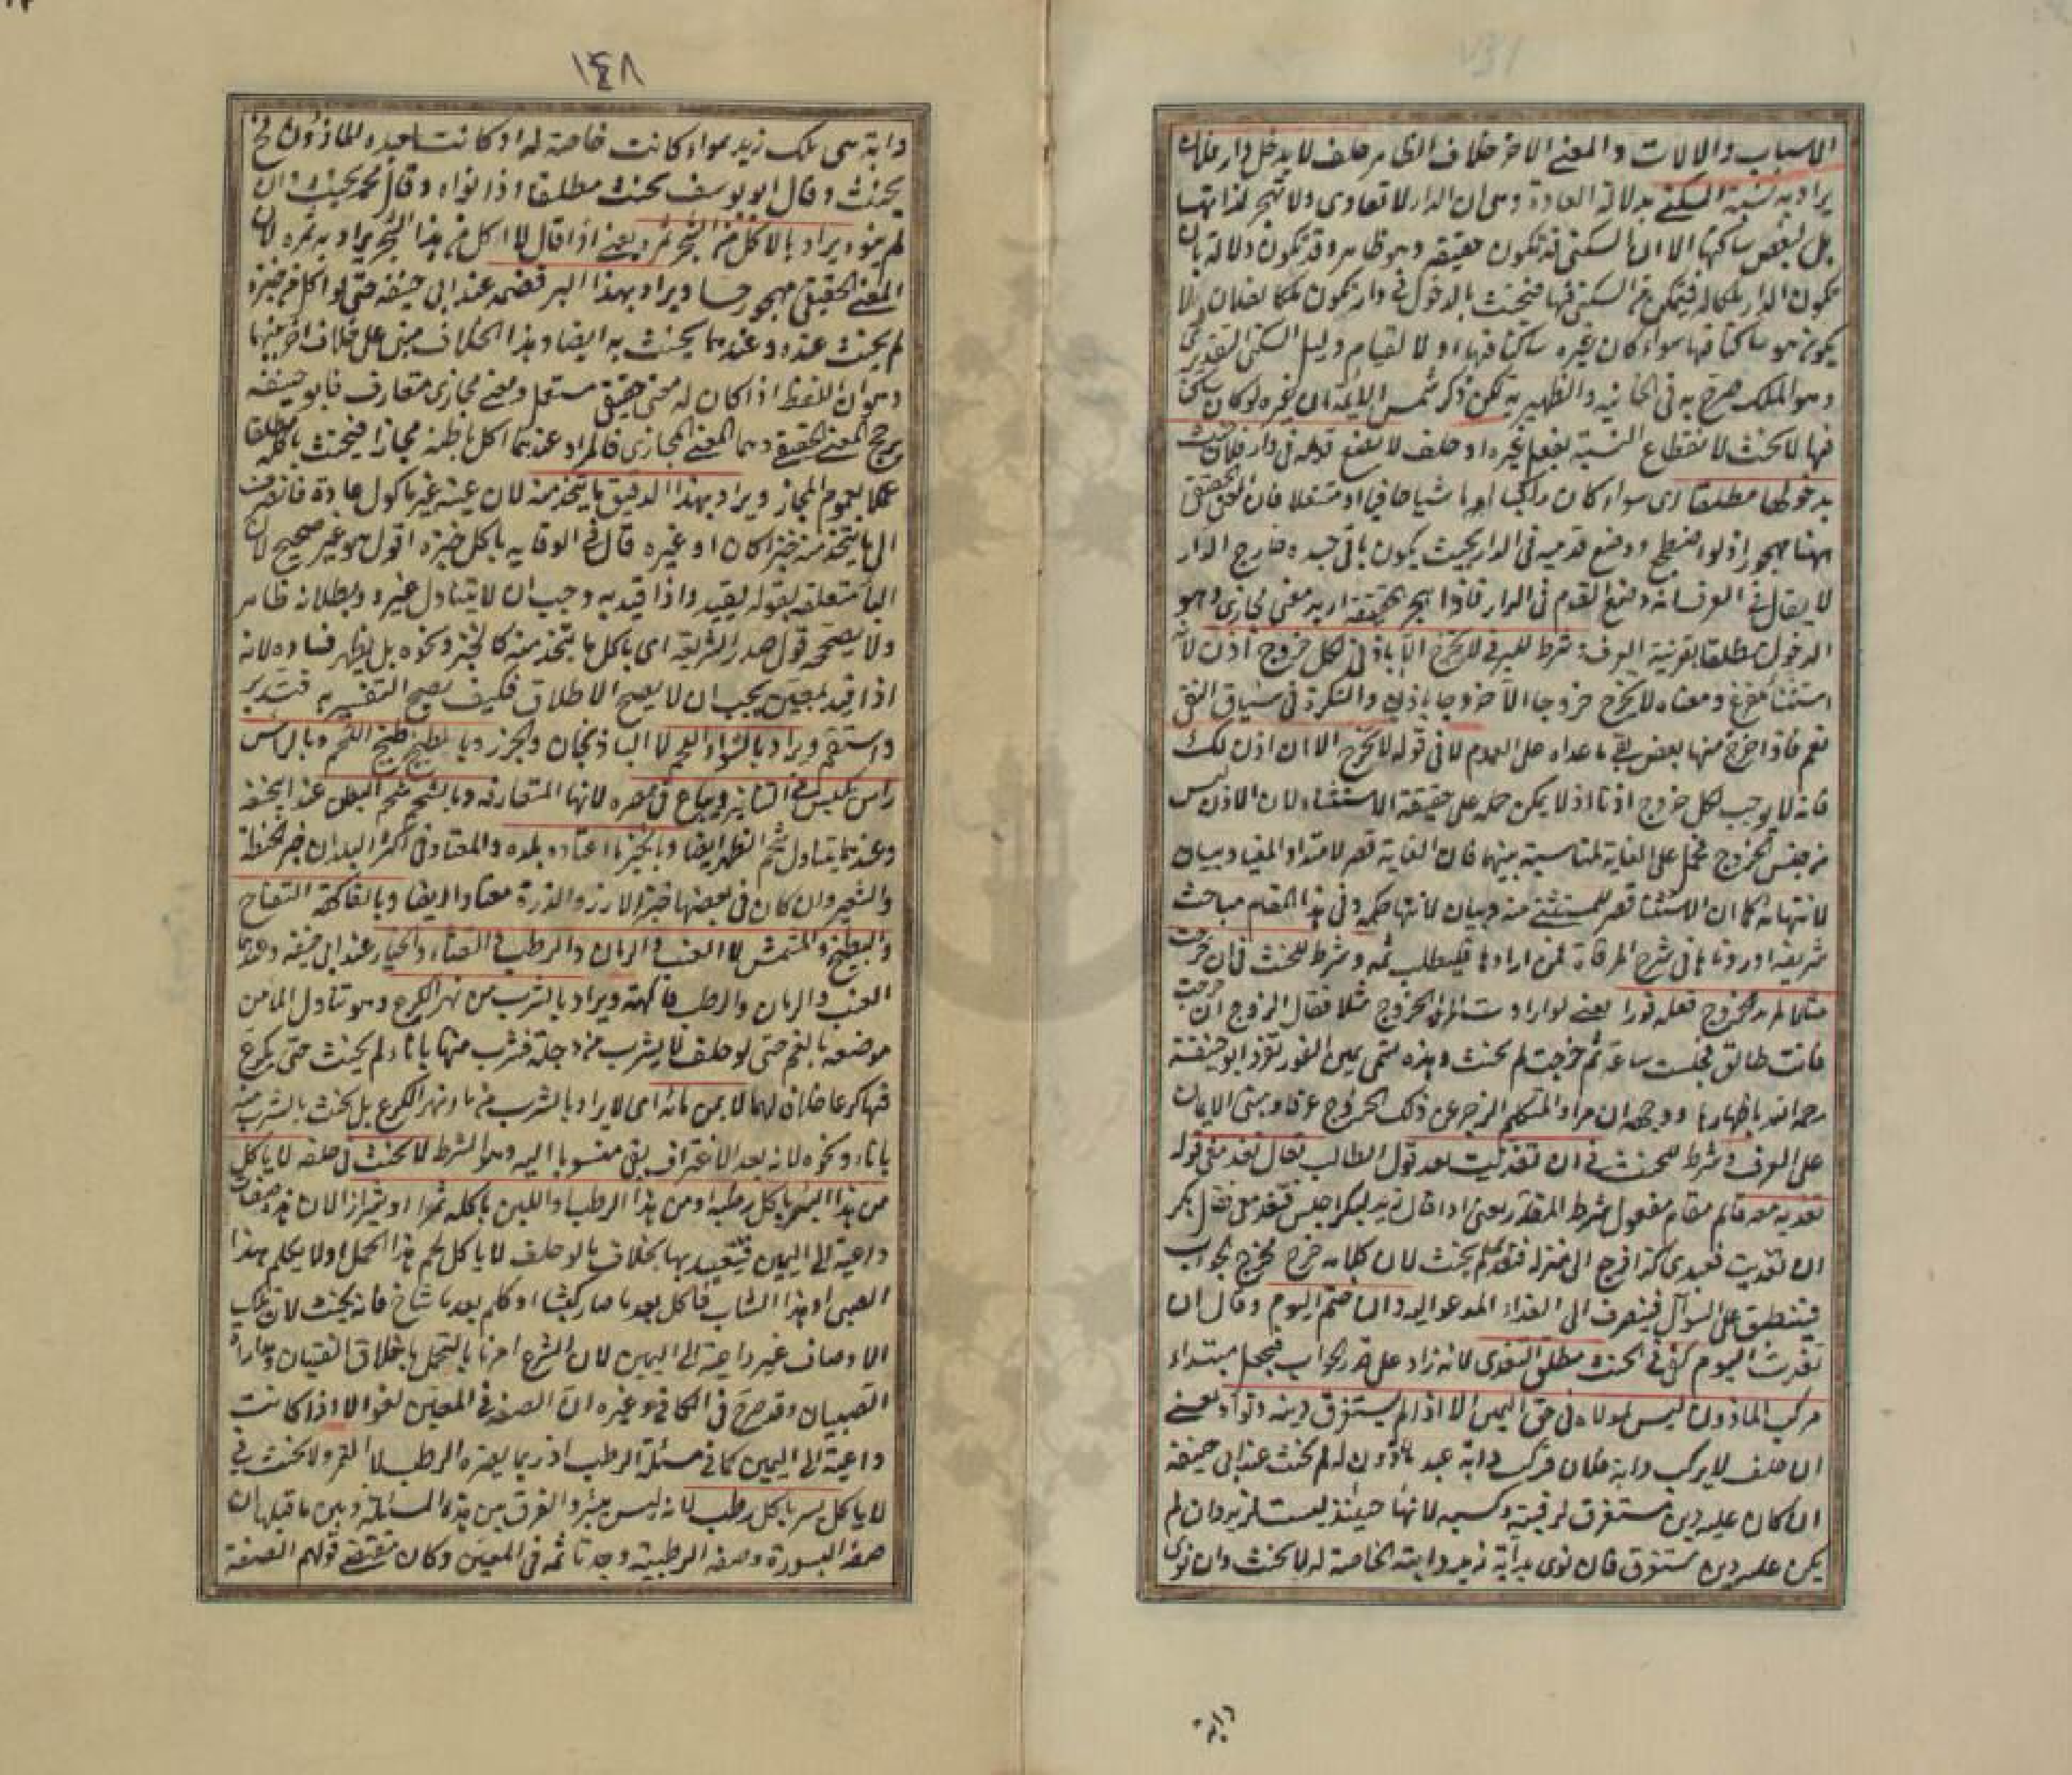 الاسباب والالات والمعنى الاخر خلاف الذى مر حلف لا يدخل دار فلان
يراد به نسبة السكنى بدلالة العادة وهى ان الدار لا تعادى ولا تهجر لذاتها
بل لبغض ساكنها الا ان السكنى قد تكون حقيقة وهو ظاهر وقد تكون دلالة بان
تكون الدار ملكا له فيتمكن من السكنى فيها فيحنث بالدخول فى دار تكون ملكا لفلان ولا
يكون هو ساكنا فيها سواء كان غيره ساكنا فيها او لا لقيام دليل السكنى التقديرى
وهو الملك صرح به فى الخانية والظهيرية لكن ذكر شمس الائمة ان غيره لو كان ساكنا
فيها لا يحنث لانقطاع النسبة بفعل غيره او حلف لا يضع قدمه فى دار فلان حنث
بدخولها مطلقا اى سواء كان راكبا او ماشيا حافيا او متنعلا فان المعنى الحقيقى
ههنا مهجور اذ لو اضطجع ووضع قدميه فى الدار بحيث يكون باقى جسده خارج الدار
لا يقال فى العرف انه وضع القدم فى الدار فاذا هجر الحقيقة اريد معنى مجازى وهو
الدخول مطلقا بقرينة العرف شرط للبر فى لا تخرج الا باذنى لكل خروج اذن لانه
استثناء مفرغ ومعناه لا يخرج خروجا الا خروجا باذنى والنكرة فى سياق النفى
تعم فاذا اخرج منها بعض بقى ما عداه على العموم لا فى قوله لا تخرج الا ان اذن لك
فانه لا يوجب لكل خروج اذنا اذ لا يمكن حمله على حقيقة الاستثناء لان الاذن ليس
من جنس الخروج فحمل على الغاية لمناسبة بينهما فان الغاية قصر لامتداد المغيا وبيان
لانتهائه كما ان الاستثناء قصر للمستثنى منه وبيان لانتهاء حكمه وفى هذا المقام مباحث
شريفة اوردناها فى شرح المرقاة فمن ارادها فليطلب ثمه وشرط للحنث فى ان خرجت
مثلا لمريد الخروج فعله فورا يعنى لو ارادت المرأة الخروج مثلا فقال الزوج ان خرجت
فانت طالق فجلست ساعة ثم خرجت لم يحنث وهذه تسمى يمين الفور تفرد ابو حنيفة
رحمه الله باظهارها ووجهه ان مراد المتكلم الزجر عن ذلك الخروج عرفا ومبنى الايمان
على العرف وشرط للحنث فى ان تغديت بعد قول الطالب تعال تغد معى قوله
تغديه معه قائم مقام مفعول شرط المقدر يعنى اذا قال زيد لبكر اجلس فتغد معى فقال بكر
ان تغديت فعبدى كذا فرجع الى منزله فتغدى لم يحنث لان كلامه خرج مخرج الجواب
فينطبق على السؤال فينصرف الى الغداء المدعو اليه وان ضم اليوم وقال ان
تغديت اليوم كفى فى الحنث مطلق التغدى لانه زاد على قدر الجواب فيجعل مبتداء
مركب الماذون ليس لمولاه فى حق اليمين الا اذا لم يستغرق دينه ونواه يعنى
ان حلف لا يركب دابة فلان فركب دابة عبد ماذون له لم يحنث عند ابى حنيفة
ان كان عليه دين مستغرق لرقبته وكسبه لانها حينئذ ليست لزيد وان لم
يكن عليه دين مستغرق فان نوى بدابة زيد دابته الخاصة له لا يحنث وان نوى
دابة
١٤٨
دابة هى ملك زيد سواء كانت خاصة له او كانت لعبده الماذون له
يحنث وقال ابو يوسف يحنث مطلقا اذا نواه وقال محمد يحنث وان
لم ينو ويراد بالاكل من الشجر ثمره يعنى اذا قال لا اكل من هذا الشجر يراد به ثمره لان
المعنى الحقيقى مهجور حسا ويراد بهذا البر قضمه عند ابى حنيفة حتى لو اكل من خبزه
لم يحنث عنده وعندهما يحنث به ايضا وهذا الخلاف مبنى على خلاف اخر بينهما
وهو ان اللفظ اذا كان له معنى حقيقى مستعمل ومعنى مجازى متعارف فابو حنيفة
يرجح المعنى الحقيقى وهما المعنى المجازى فالمراد عندهما اكل باطنه مجازا فيحنث باكله مطلقا
عملا بعموم المجاز ويراد بهذا الدقيق ما يتخذ منه لان عينه غير ماكول عادة فانصرف
الى ما يتخذ منه خبزا كان او غيره قال فى الوقاية باكل خبزه اقول هو غير صحيح لان
الباء متعلقة بقوله يقيد واذا قيد به وجب ان لا يتناول غيره وبطلانه ظاهر
ولا يصححه قول صدر الشريعة اى باكل ما يتخذ منه كالخبز ونحوه بل يظهر فساده لانه
اذا قيد بمعين يجب ان لا يصح الاطلاق فكيف يصح التفسير به فتدبر
واستقم ويراد بالشواء اللحم لا الباذنجان والجزر وبالطبيخ طبيخ اللحم وبالراس
راس يكبس فى التنانير ويباع فى مصره لانها المتعارفة وبالشحم شحم البطن عند ابى حنيفة
وعندهما يتناول شحم الظهر ايضا وبالخبز ما اعتاده بلده والمعتاد فى اكثر البلدان خبز الحنطة
والشعير وان كان فى بعضها خبز الارز والذرة معتادا ايضا وبالفاكهة التفاح
والبطيخ والمشمش لا العنب والرمان والرطب والقثاء والخيار عند ابى حنيفة وعندهما
العنب والرمان والرطب فاكهة ويراد بالشرب من نهر الكرع وهو تناول الماء من
موضعه بالفم حتى لو حلف لا يشرب من دجلة فشرب منها باناء لم يحنث حتى يكرع
فيها كرعا خلافا لهما لا من مائه اى لا يراد بالشرب من ماء نهر الكرع بل يحنث بالشرب منه
باناء ونحوه لانه بعد الاغتراف بقى منسوبا اليه وهو الشرط لا يحنث فى حلفه لا ياكل
من هذا البسر باكل رطبه او من هذا الرطب او اللبن باكله تمرا او شيرازا لان هذه صفات
داعية الى اليمين فيتقيد بها بخلاف ما لو حلف لا ياكل لحم هذا الحمل او لا يكلم هذا
الصبى او هذا الشاب فاكل بعد ما صار كبشا او كلم بعد ما شاخ فانه يحنث لان تلك
الاوصاف غير داعية الى اليمين لان الشرع امرنا بالتحمل باخلاق الفتيان ومداراة
الصبيان وقد صرح فى الكافى وغيره ان الصفة فى المعين لغو الا اذا كانت
داعية الى اليمين كما فى مسئلة الرطب اذ ربما يضره الرطب لا التمر ولا يحنث فى
لا ياكل بسرا باكل رطب لانه ليس ببسر والفرق بين هذه المسئلة وبين ما قبلها ان
صفة البسورة وصفة الرطبية وجدتا ثمه فى المعين وكان مقتضى قولهم الصفة